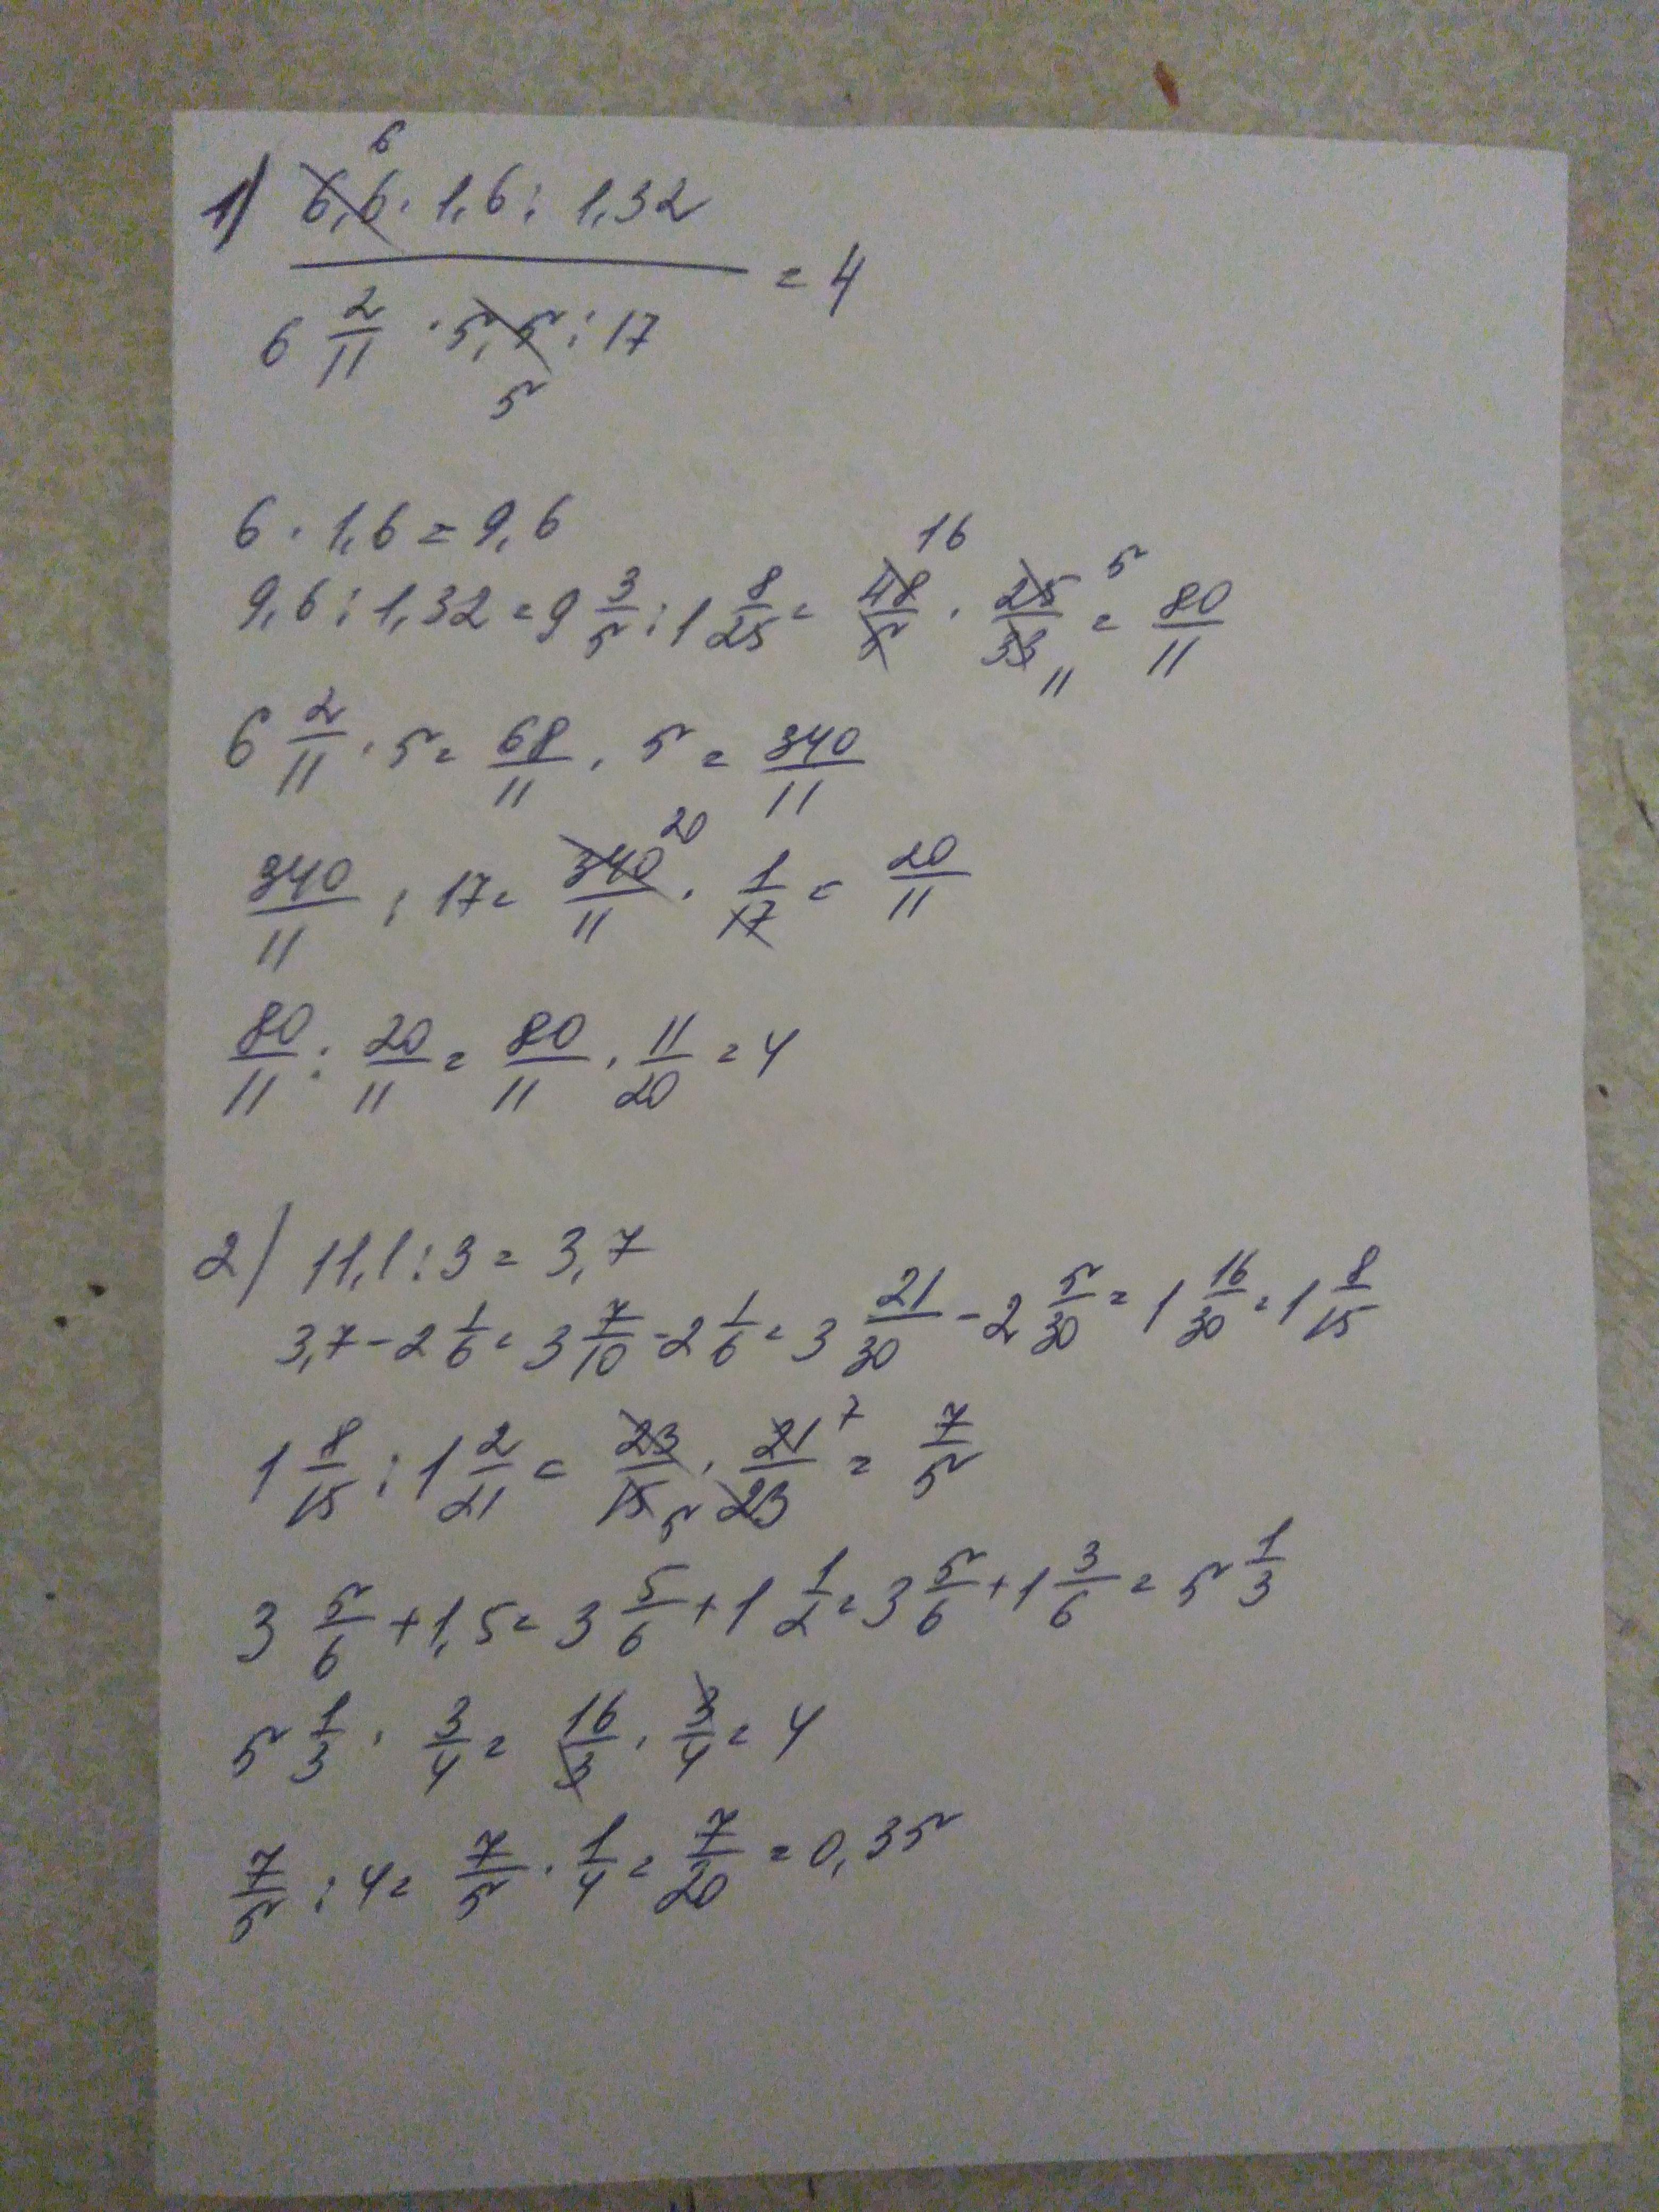 6
1) 6,6 · 1,6 : 1,32
= 4
6 2/11 · 5,5 : 17
5
6 · 1,6 = 9,6
16 5
9,6 : 1,32 = 9 3/5 : 1 8/25 = 48/5 · 25/33 = 80/11
11
6 2/11 · 5 = 68/11 · 5 = 340/11
20
340/11 : 17 = 340/11 · 1/17 = 20/11
80/11 : 20/11 = 80/11 · 11/20 = 4
2) 11,1 : 3 = 3,7
3,7 - 2 1/6 = 3 7/10 - 2 1/6 = 3 21/30 - 2 5/30 = 1 16/30 = 1 8/15
7
1 8/15 : 1 2/21 = 23/15 · 21/23 = 7/5
5
3 5/6 + 1,5 = 3 5/6 + 1 1/2 = 3 5/6 + 1 3/6 = 5 1/3
5 1/3 · 3/4 = 16/3 · 3/4 = 4
7/5 : 4 = 7/5 · 1/4 = 7/20 = 0,35